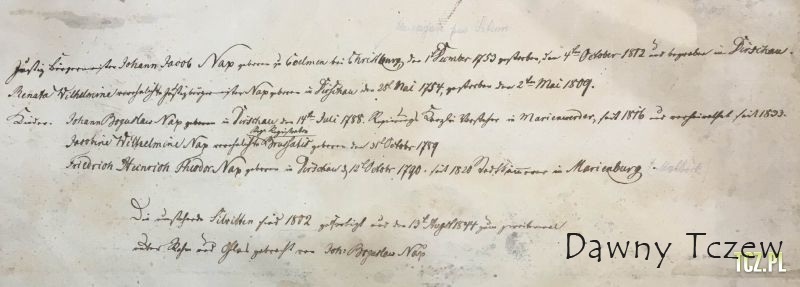 Justiz Bürgermeister Johann Jacob Nap geboren zu Godmen bei Christburg, den 1t 1753 gestorben, den 4ten October 1812 und begraben in Dirschau.
Renata Wilhelmine verehelichte Justizbürgermeister Nap geboren in Dirschau den 28t Mai 1754, gestorben den 2ten Mai 1809.
Kinder. Johann Boguslaw Nap geboren in Dirschau, den 14ten Juli 1788. Regierungs Kanzlei Vorsteher in Marienwerder, seit 1816 und seit 1833.
Jacobine Wilhelmine Nap verehelichte geboren den 31t October 1789
Friedrich Heinrich Theodor Nap geboren in Dirschau d. 12t Octobr 1790. seit 1820 in Marienburg
Die Silhouetten sind 1802 gefertigt und den 13t August 1844 zum
unter Rahm und Glas gebracht von Joh: Boguslaw Nap
Dawny Tczew
TCZ.PL